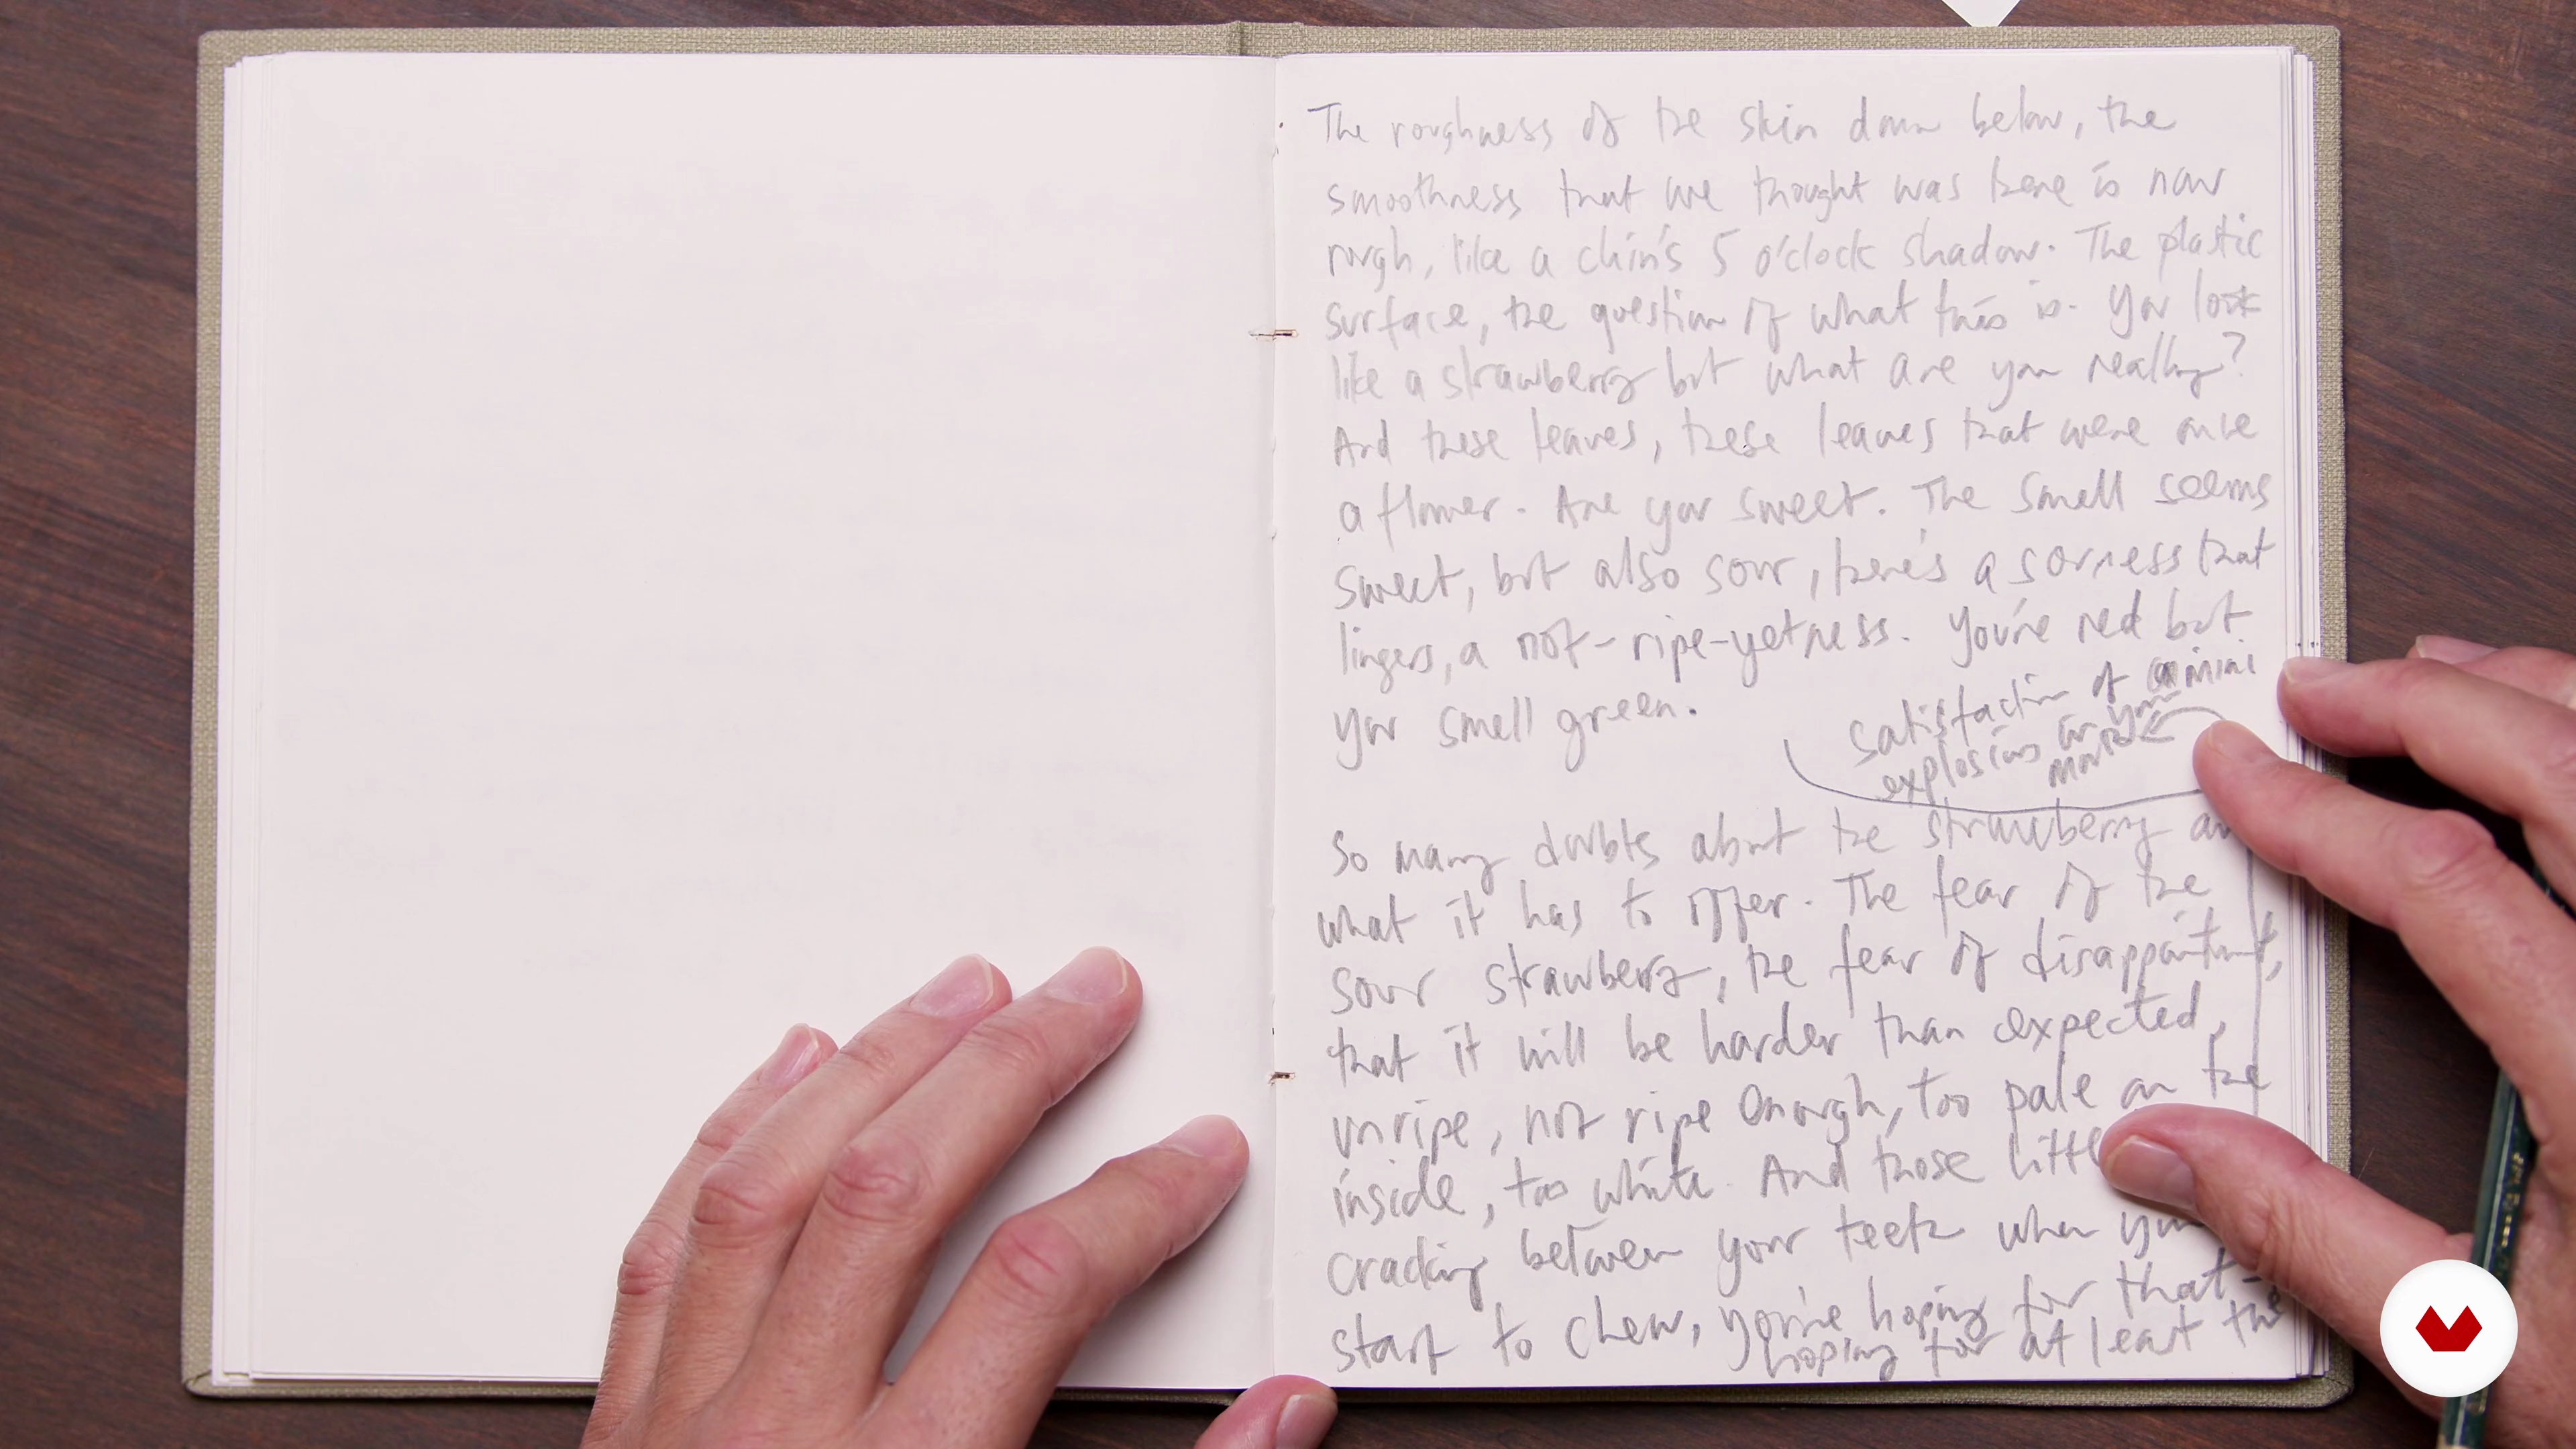 The roughness of the skin down below, the
smoothness that we thought was there is now
rough, like a chin's 5 o'clock shadow. The plastic
surface, the question of what this is. You look
like a strawberry but what are you really?
And these leaves, these leaves that were once
a flower. Are you sweet. The smell seems
sweet, but also sour, there's a sourness that
lingers, a not-ripe-yetness. You're red but
you smell green.
satisfaction of a mini
explosion in your
So many doubts about the strawberry
what it has to offer. The fear of the
sour strawberry, the fear of disappointment,
that it will be harder than expected,
unripe, not ripe enough, too pale on the
inside, too white. And those
cracking between your teeth when you
start to chew, you're hoping for that-
hoping for at least the